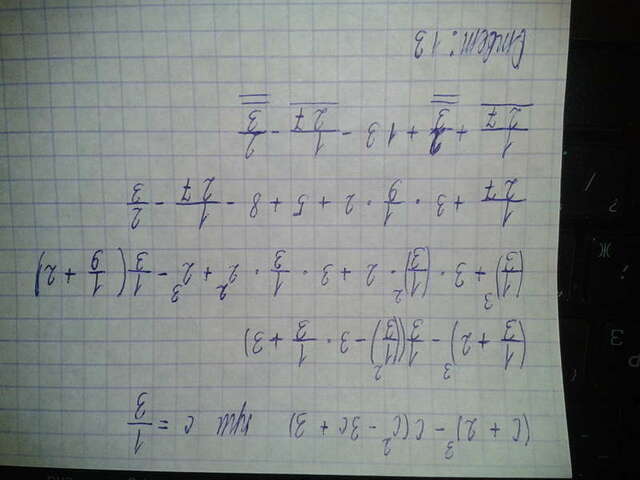 (c + 2)³ - c(c² - 3c + 3) при c = 1/3
(1/3 + 2)³ - 1/3((1/3)² - 3 · 1/3 + 3)
(1/3)³ + 3 · (1/3)² · 2 + 3 · 1/3 · 2² + 2³ - 1/3(1/9 + 2)
1/27 + 3 · 1/9 · 2 + 5 + 8 - 1/27 - 2/3
1/27 + 2/3 + 13 - 1/27 - 2/3
Ответ: 13